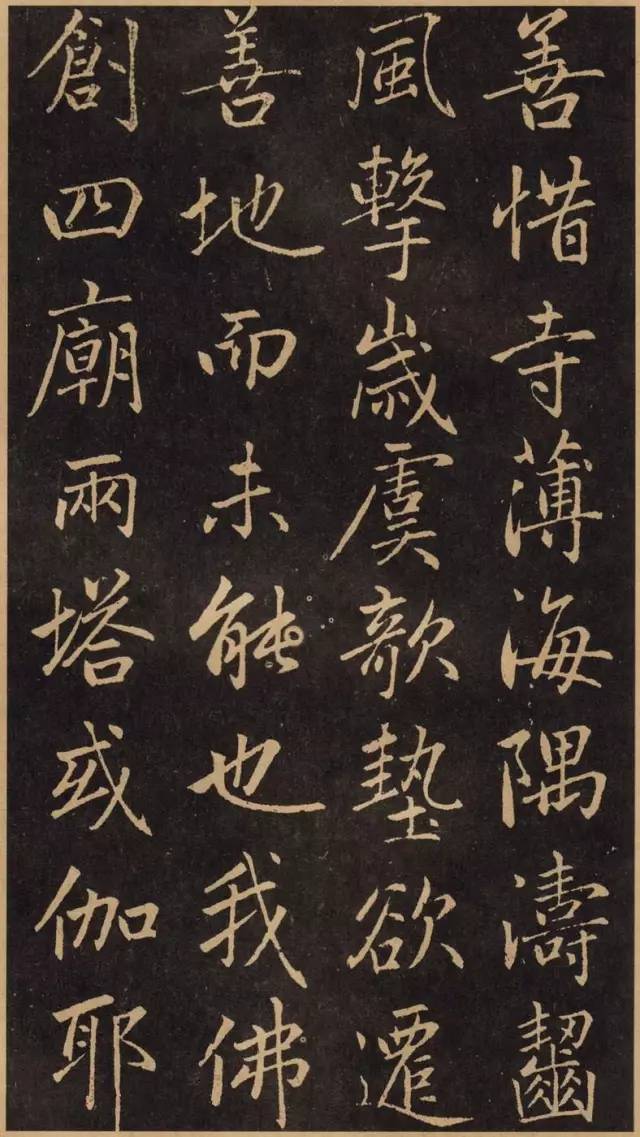 善惜寺薄海隅濤齧
風擊歲虞欹墊欲遷
善地而未能也我佛
創四廟兩塔或伽耶